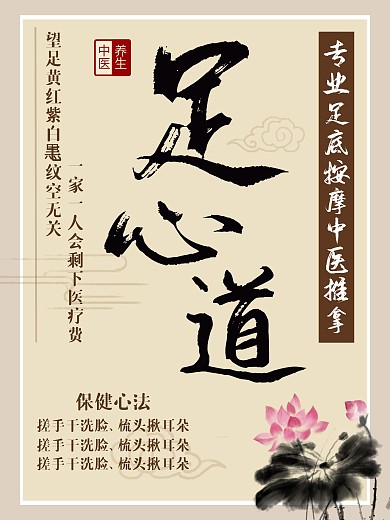 专业足底按摩中医推拿
足心道
中医
养生
望足黄红紫白墨纹空无关
一家一人会剩下医疗费
保健心法
搓手干洗脸、梳头揪耳朵
搓手干洗脸、梳头揪耳朵
搓手干洗脸、梳头揪耳朵